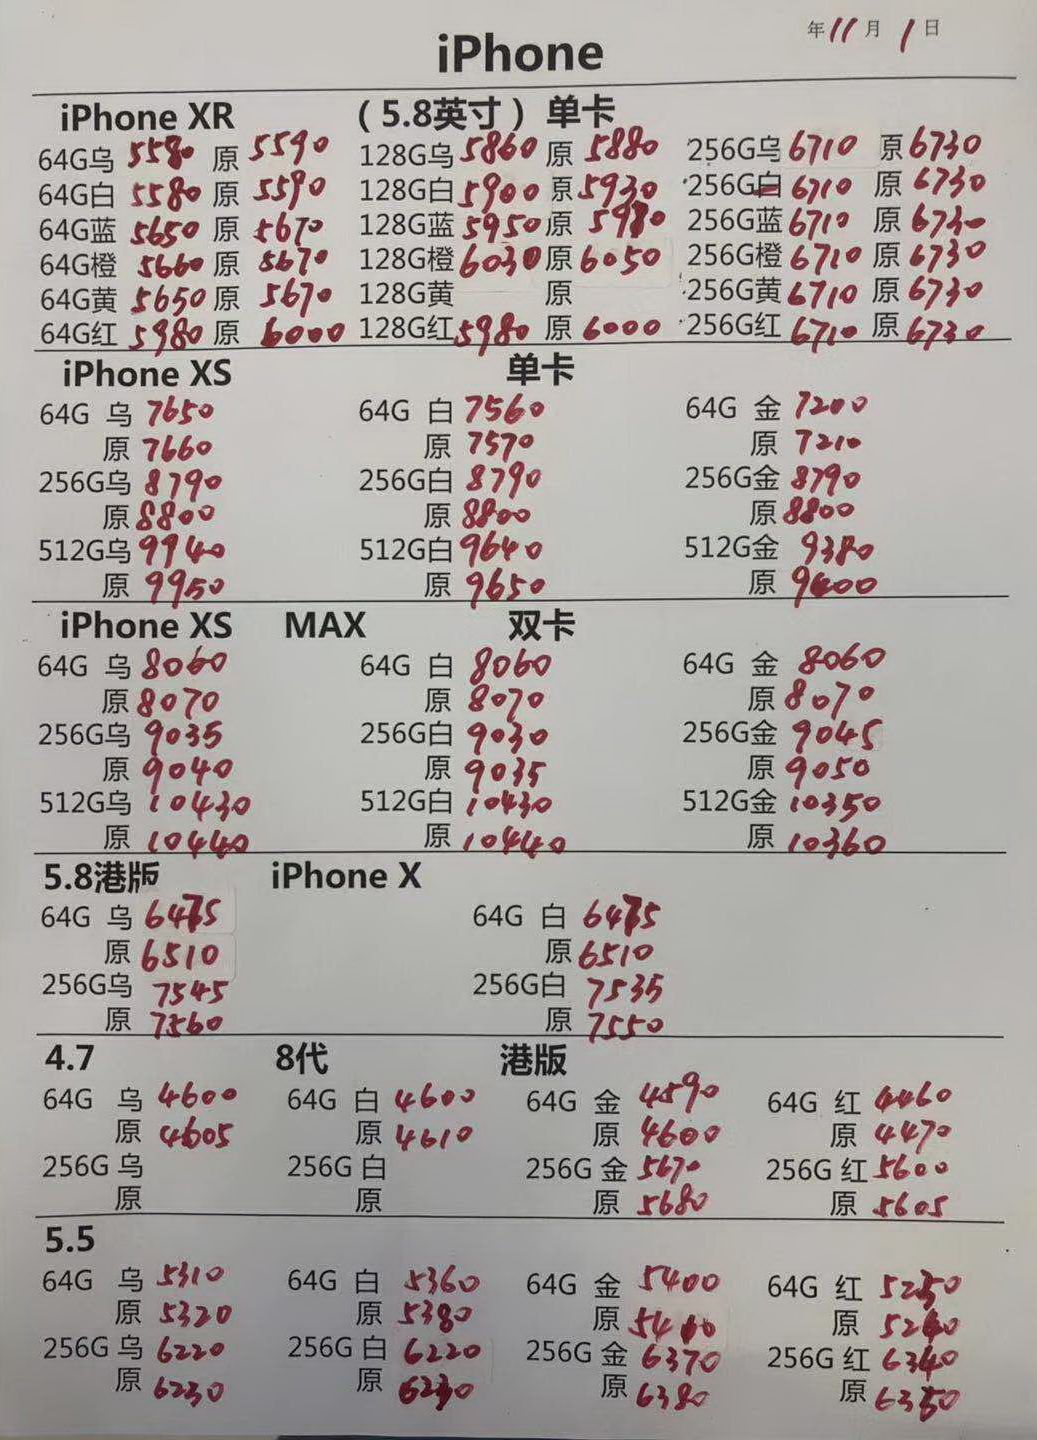 年11月1日
iPhone
iPhone XR （5.8英寸）单卡
64G乌 5580 原 5590 128G乌 5860 原 5880 256G乌 6710 原 6730
64G白 5580 原 5590 128G白 5900 原 5930 256G白 6710 原 6730
64G蓝 5650 原 5670 128G蓝 5950 原 5980 256G蓝 6710 原 6730
64G橙 5660 原 5670 128G橙 6030 原 6050 256G橙 6710 原 6730
64G黄 5650 原 5670 128G黄 原 256G黄 6710 原 6730
64G红 5980 原 6000 128G红 5980 原 6000 256G红 6710 原 6730
iPhone XS 单卡
64G 乌 7650 64G 白 7560 64G 金 7200
原 7660 原 7570 原 7210
256G乌 8790 256G白 8790 256G金 8790
原 8800 原 8800 原 8800
512G乌 9940 512G白 9640 512G金 9380
原 9950 原 9650 原 9400
iPhone XS MAX 双卡
64G 乌 8060 64G 白 8060 64G 金 8060
原 8070 原 8070 原 8070
256G乌 9035 256G白 9030 256G金 9045
原 9040 原 9035 原 9050
512G乌 10430 512G白 10430 512G金 10350
原 10440 原 10440 原 10360
5.8港版 iPhone X
64G 乌 6475 64G 白 6475
原 6510 原 6510
256G乌 7545 256G白 7535
原 7560 原 7550
4.7 8代 港版
64G 乌 4600 64G 白 4600 64G 金 4590 64G 红 4460
原 4605 原 4610 原 4600 原 4470
256G 乌 256G 白 256G 金 5670 256G 红 5600
原 原 原 5680 原 5605
5.5
64G 乌 5310 64G 白 5360 64G 金 5400 64G 红 5230
原 5320 原 5380 原 5410 原 5240
256G 乌 6220 256G 白 6220 256G 金 6370 256G 红 6340
原 6230 原 6230 原 6380 原 6350